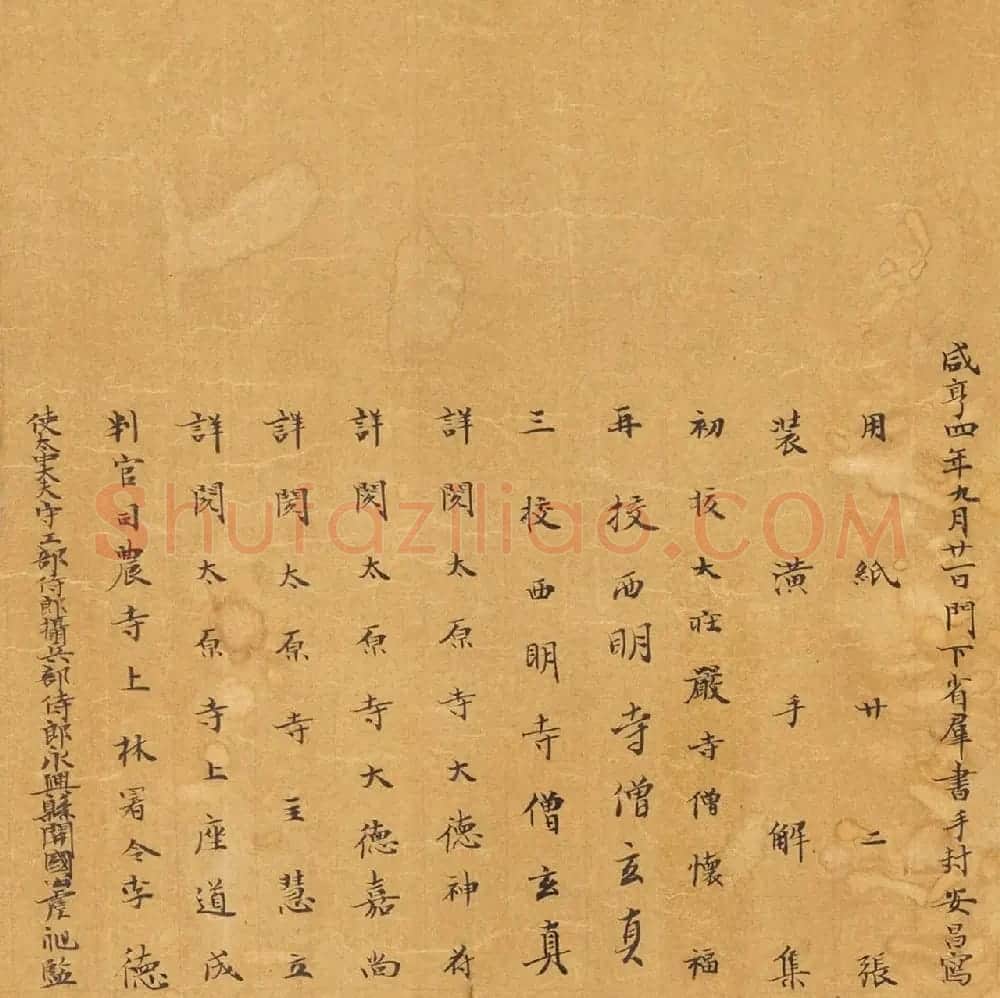 咸亨四年九月廿一日門下省羣書手封安昌寫
用紙廿二張
裝潢手解集
初校大莊嚴寺僧懷福
再校西明寺僧玄真
三校西明寺僧玄真
詳閱太原寺大德神符
詳閱太原寺大德嘉尚
詳閱太原寺主慧立
詳閱太原寺上座道成
判官司農寺上林署令李德
使太中大夫守工部侍郎攝兵部侍郎永興縣開國公虞昶監
Shufaziliao.COM